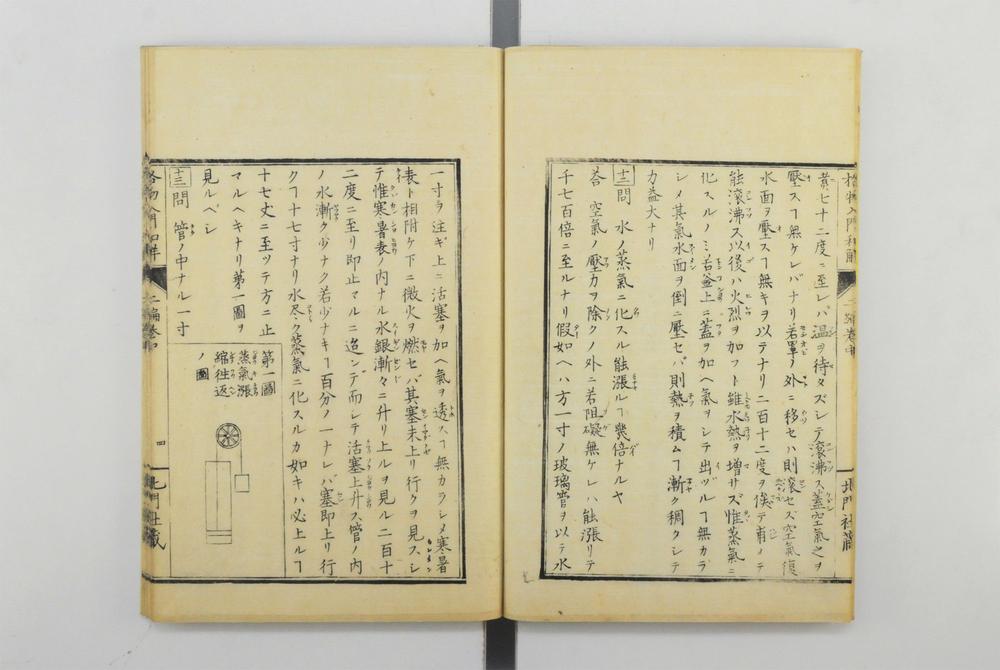 黄七十二度ニ至レバ温ヲ待タズシテ滾沸ス蓋空氣之ヲ
壓スヿ無ケレバナリ若罩ノ外ニ移セハ則滾セズ空氣復
水面ヲ壓スヿ無キヲ以テナリ二百十二度ヲ俟テ甫メテ
能滾沸ス以後ハ火烈ヲ加フト雖水熱ヲ増サズ惟蒸氣ニ
化スルノミ若釜上ニ蓋ヲ加ヘ氣ヲシテ出ヅルヿ無カラ
シメ其氣水面ヲ倒ニ壓セバ則熱ヲ積ムヿ漸ク稠クシテ
力益大ナリ
十二 問 水ノ蒸氣ニ化スル能漲ルヿ幾倍ナルヤ
荅 空氣ノ壓力ヲ除クノ外ニ若阻礙無ケレハ能漲リテ
千七百倍ニ至ルナリ假如ヘハ方一寸ノ玻璃管ヲ以テ水
北門社藏
一寸ヲ注ギ上ニ活塞ヲ加ヘ氣ヲ透スヿ無カラシメ寒暑
表ト相附ケ下ニ微火ヲ燃セバ其塞未上リ行クヲ見ズシ
テ惟寒暑表ノ内ナル水銀漸々ニ升リ上ルヲ見ル二百十
二度ニ至リ即止マルニ迨ンデ而シテ活塞上升ス管ノ内
ノ水漸ク少ナク若少ナキヿ百分ノ一ナレバ塞即上リ行
クヿ十七寸ナリ水尽ク蒸氣ニ化スルカ如キハ必上ルヿ
十七丈ニ至ツテ方ニ止
マルヘキナリ第一圖ヲ
見ルベシ
十三 問 管ノ中ナル一寸
第一圖
蒸氣漲
縮往返
ノ圖
格物入門和解
二編巻中
四
北門社藏